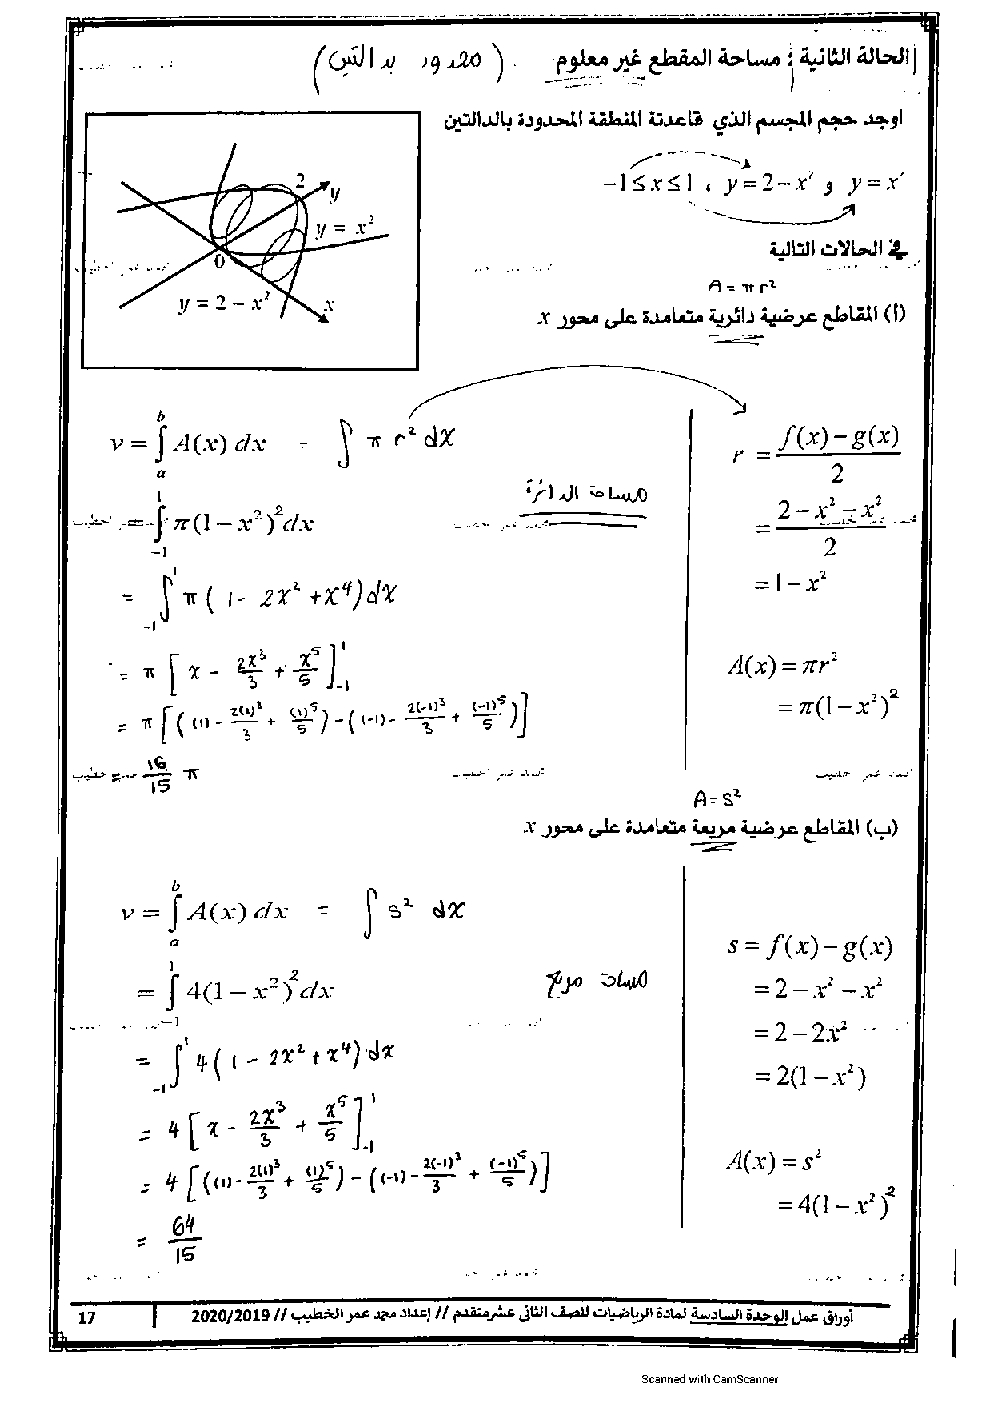 الحالة الثانية : مساحة المقطع غير معلوم . (محدود بدالتين)
اوجد حجم المجسم الذي قاعدتة المنطقة المحدودة بالدالتين
y = x² و y = 2 − x² ، −1 ≤ x ≤ 1
في الحالات التالية
2
y
y = x²
0
y = 2 − x²
x
A = πr²
(أ) المقاطع عرضية دائرية متعامدة على محور x
v = ∫_a^b A(x) dx = ∫ π r² dx
مساحة الدائرة
= ∫_{−1}^{1} π(1 − x²)² dx
= ∫_{−1}^{1} π(1 − 2x² + x⁴) dx
= π [x − 2x³/3 + x⁵/5]_{−1}^{1}
= π [((1) − 2(1)³/3 + (1)⁵/5) − ((−1) − 2(−1)³/3 + (−1)⁵/5)]
= 16/15 π
r = (f(x) − g(x))/2
= (2 − x² − x²)/2
= 1 − x²
A(x) = πr²
= π(1 − x²)²
A = s²
(ب) المقاطع عرضية مربعة متعامدة على محور x
v = ∫_a^b A(x) dx = ∫ s² dx
مساحة مربع
= ∫_{−1}^{1} 4(1 − x²)² dx
= ∫_{−1}^{1} 4(1 − 2x² + x⁴) dx
= 4 [x − 2x³/3 + x⁵/5]_{−1}^{1}
= 4 [((1) − 2(1)³/3 + (1)⁵/5) − ((−1) − 2(−1)³/3 + (−1)⁵/5)]
= 64/15
s = f(x) − g(x)
= 2 − x² − x²
= 2 − 2x²
= 2(1 − x²)
A(x) = s²
= 4(1 − x²)²
أوراق عمل الوحدة السادسة لمادة الرياضيات للصف الثاني عشر متقدم // إعداد محمد عمر الخطيب // 2020/2019
17
Scanned with CamScanner